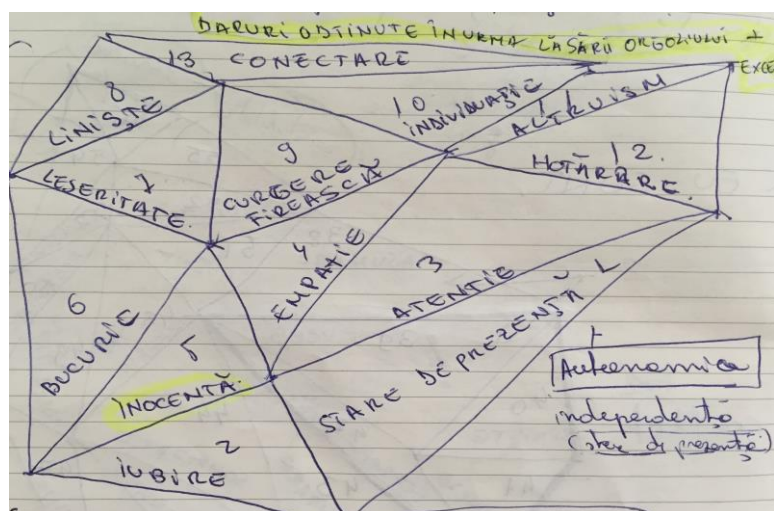 DARURI OBȚINUTE ÎN URMA LĂSĂRII ORGOLIULUI +
EXCE
13
CONECTARE
8
LINIȘTE
10
INDIVIDUAȚIE
11
ALTRUISM
9
CURGERE
FIREASCĂ
12.
HOTĂRÂRE.
7
LEJERITATE.
4
EMPATIE
3
ATENȚIE
6
BUCURIE
5
INOCENȚĂ.
1
STARE DE PREZENȚĂ
2
IUBIRE
+
Autonomica
independență
(stare de prezență)